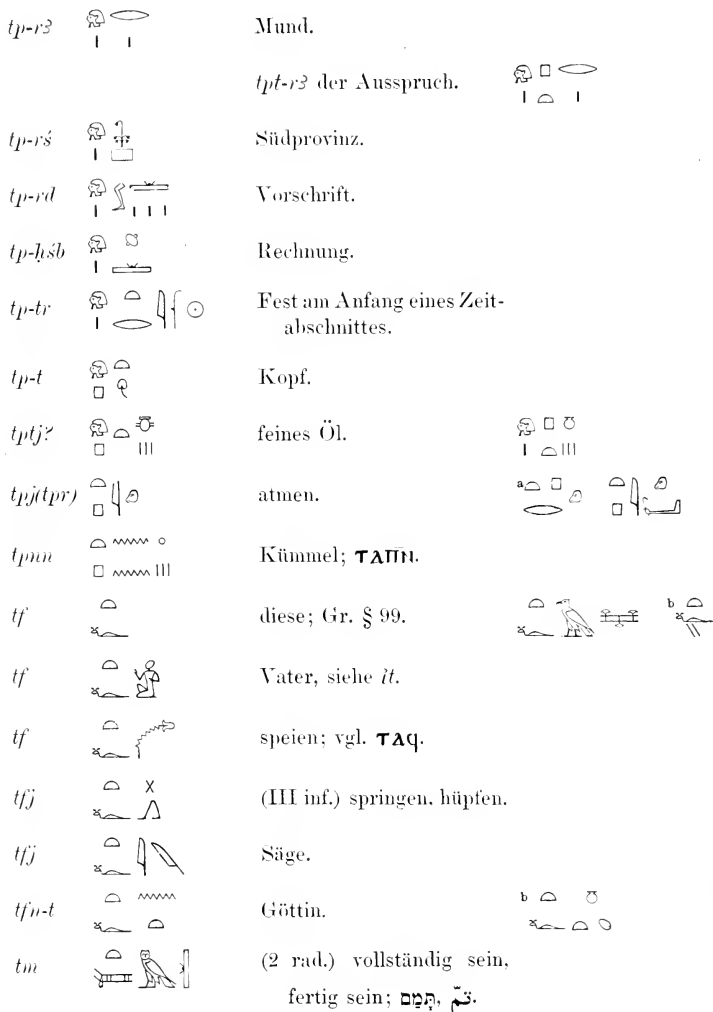 tp-rꜣ Mund.
tpt-rꜣ der Ausspruch.
tp-rś Südprovinz.
tp-rd Vorschrift.
tp-ḥśb Rechnung.
tp-tr Fest am Anfang eines Zeit-
abschnittes.
tp-t Kopf.
tptj? feines Öl.
tpj(tpr) atmen. a
tpnn Kümmel; ⲧⲁⲡⲛ̄.
tf diese; Gr. § 99. b
tf Vater, siehe it.
tf speien; vgl. ⲧⲁϥ.
tfj (III inf.) springen, hüpfen.
tfj Säge.
tfn-t Göttin. b
tm (2 rad.) vollständig sein,
fertig sein; תָּמַם, تمّ.